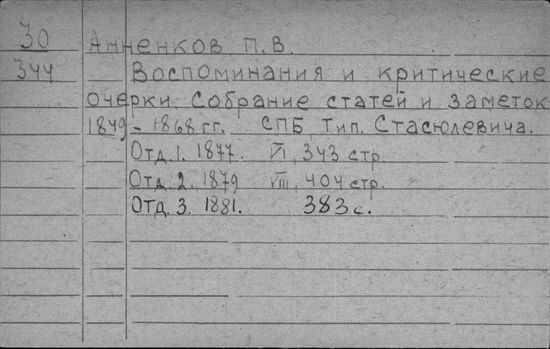 30 Анненков П.В.
344 Воспоминания и критические
очерки. Собрание статей и заметок
1849 - 1868 гг. СПБ, Тип. Стасюлевича.
Отд. 1. 1877. VI, 343 стр.
Отд. 2. 1879 VIII, 404 стр.
Отд. 3. 1881. 383 с.